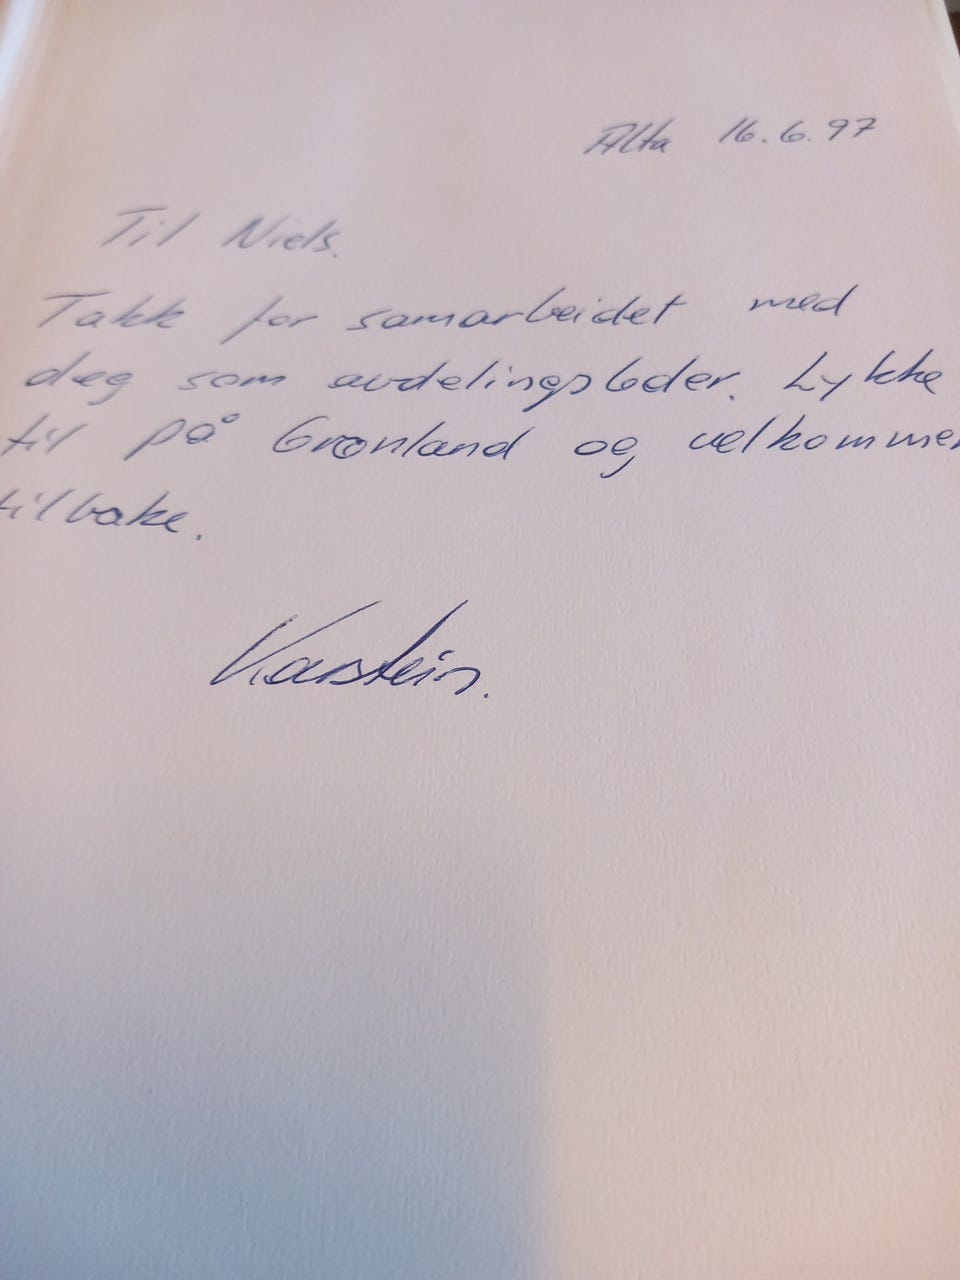 Alta 16.6.97
Til Niels.
Takk for samarbeidet med
deg som avdelingsleder. Lykke
til på Grønland og velkommen
tilbake.
Karstein.